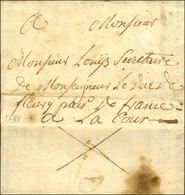 A Monsieur
Monsieur Louijs Secretaire
De Monseigneur Le Duc de
fleury pair de france
a La Cour